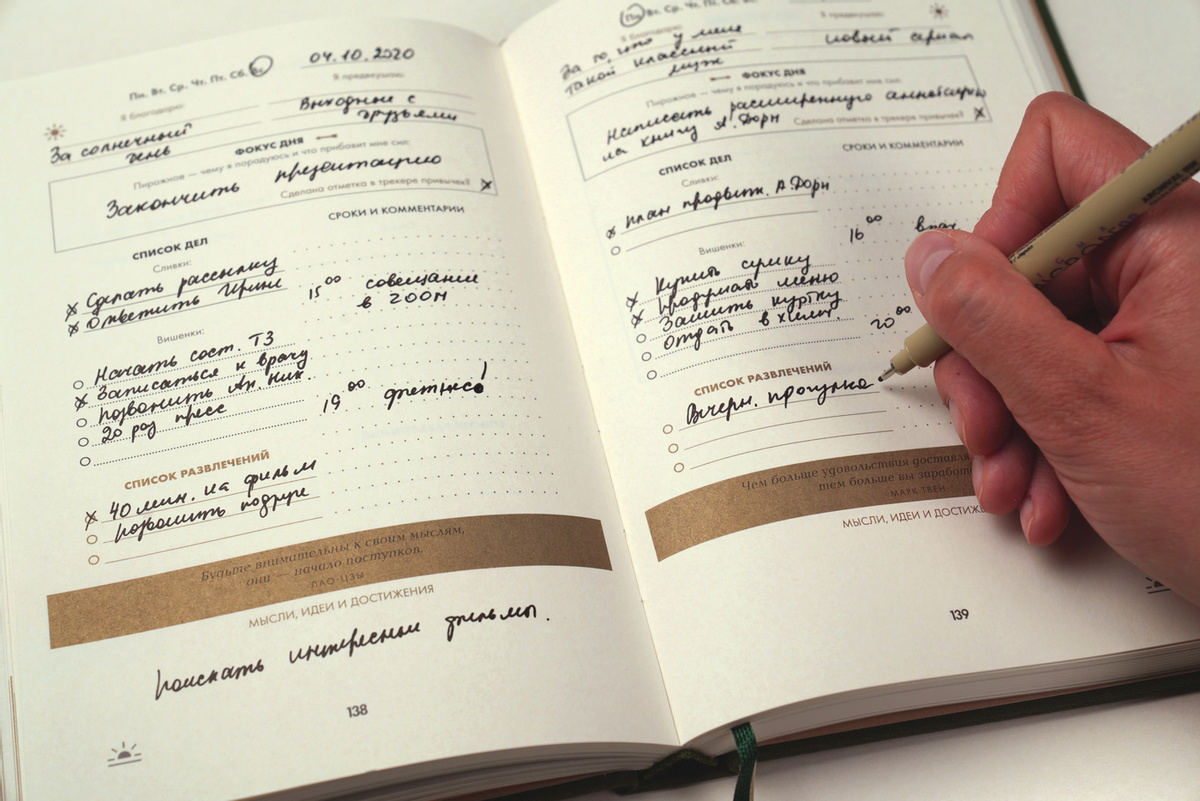 Пн. Вт. Ср. Чт. Пт. Сб. Вс.
04.10.2020
Я благодарю:
Я предвкушаю:
За солнечный
день
Выходные с
друзьями
ФОКУС ДНЯ
Пирожное — чему я порадуюсь и что прибавит мне сил:
Закончить презентацию
Сделана отметка в трекере привычек?
СПИСОК ДЕЛ
СРОКИ И КОММЕНТАРИИ
Сливки:
Сделать рассылку
Ответить Ирине
15 00 совещание
в ZOOM
Вишенки:
Начать сост. ТЗ
Записаться к врачу
Позвонить Ан. Ник.
20 раз пресс
19 00 фитнес!
СПИСОК РАЗВЛЕЧЕНИЙ
40 мин. на фильм
Позвонить подруге
Будьте внимательны к своим мыслям,
они — начало поступков.
ЛАО-ЦЗЫ
МЫСЛИ, ИДЕИ И ДОСТИЖЕНИЯ
Поискать интересные фильмы.
138
Пн. Вт. Ср. Чт. Пт. Сб. Вс.
Я благодарю:
Я предвкушаю:
За то, что у меня
такой классный
муж
новый сериал
ФОКУС ДНЯ
Пирожное — чему я порадуюсь и что прибавит мне сил:
Написать расширенную аннотацию
на книгу А. Дорн
Сделана отметка в трекере привычек?
СПИСОК ДЕЛ
СРОКИ И КОММЕНТАРИИ
Сливки:
План продвиж. А. Дорн
Вишенки:
16 00 врач
Купить сумку
Продумать меню
Зашить куртку
Отдать в химч.
20 00
СПИСОК РАЗВЛЕЧЕНИЙ
Вечерн. прогулка
Чем больше удовольствия доставля
тем больше вы заработ
МАРК ТВЕН
МЫСЛИ, ИДЕИ И ДОСТИЖЕ
139